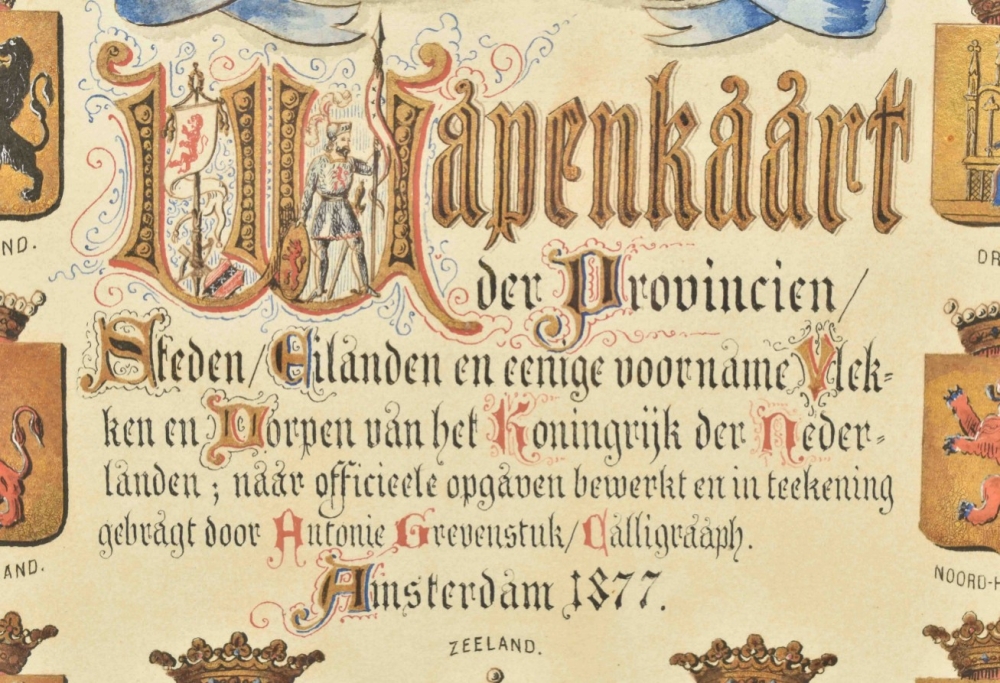 Wapenkaart
der Provincien/
Steden/Eilanden en eenige voorname Vlek-
ken en Dorpen van het Koningrijk der Neder-
landen; naar officieele opgaven bewerkt en in teekening
gebragt door Antonie Grevenstuk/Calligraaph.
Amsterdam 1877.
ND.
DR
AND.
NOORD-H
ZEELAND.